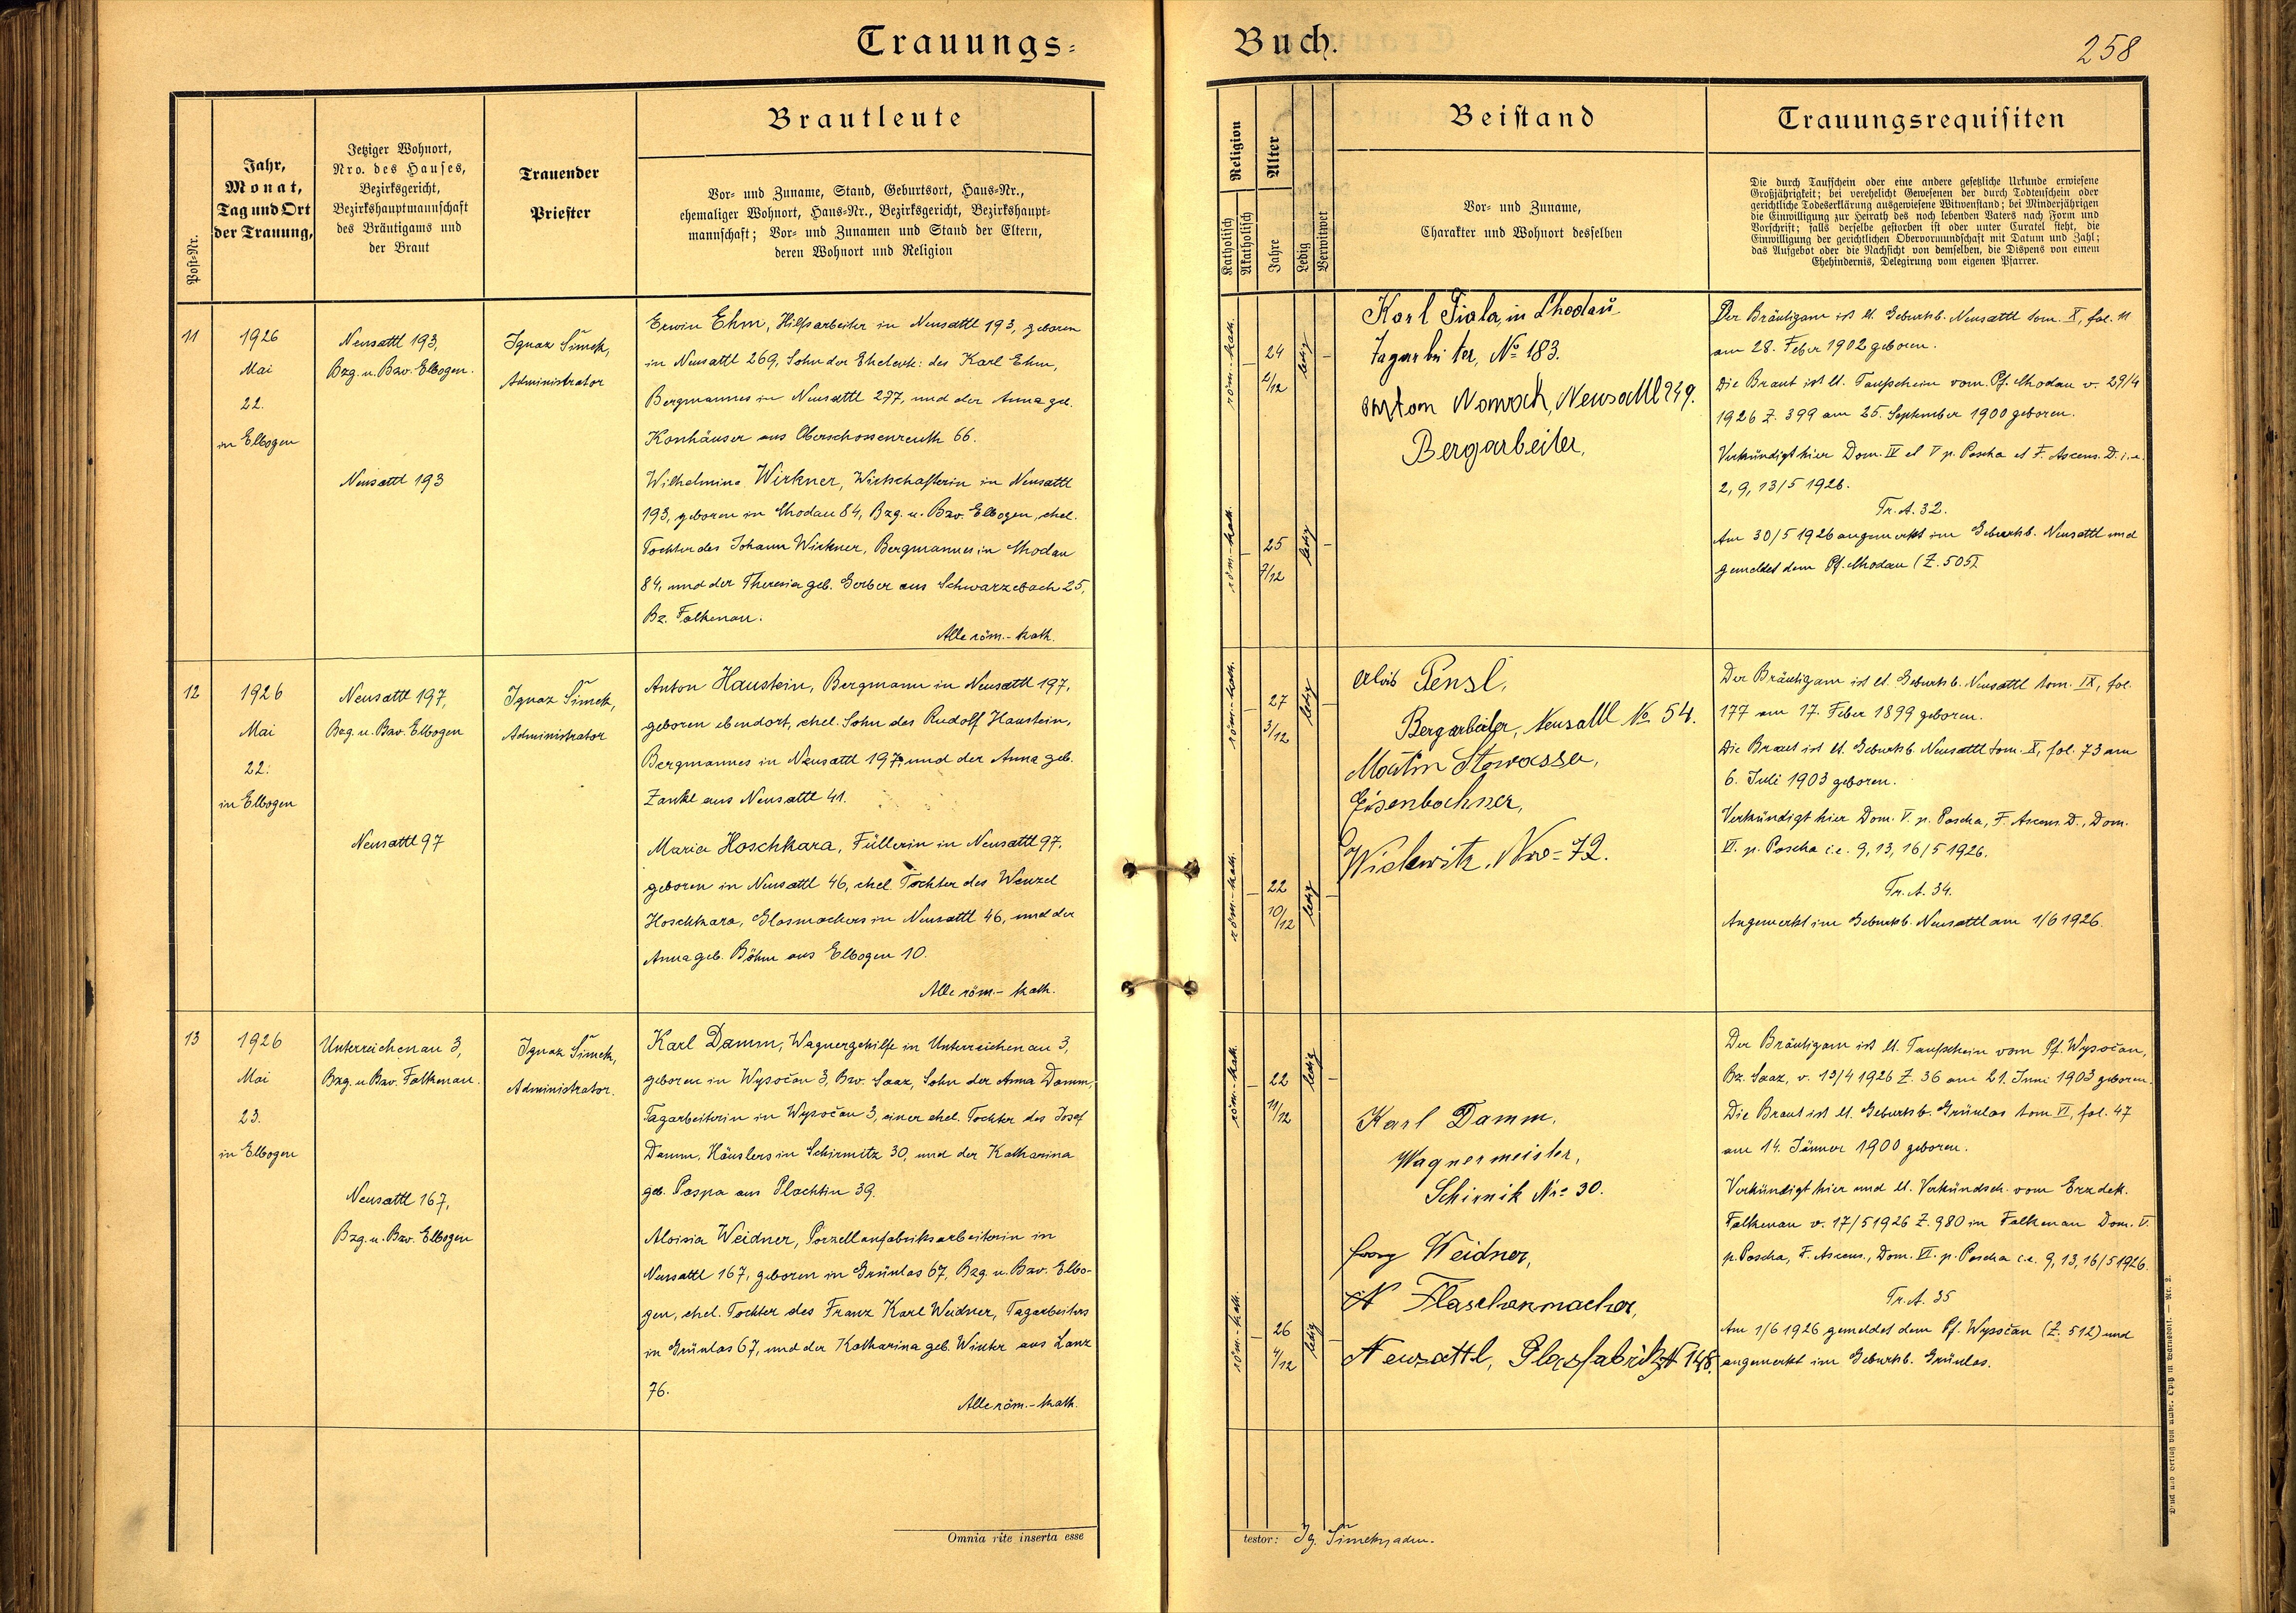 Trauungs-
Buch.
258
Post-Nr.
Jahr,
Monat,
Tag und Ort
der Trauung,
Jetziger Wohnort,
Nro. des Hauses,
Bezirksgericht,
Bezirkshauptmannschaft
des Bräutigams und
der Braut
Trauender
Priester
Brautleute
Vor- und Zuname, Stand, Geburtsort, Haus-Nr.,
ehemaliger Wohnort, Haus-Nr., Bezirksgericht, Bezirkshaupt-
mannschaft; Vor- und Zunamen und Stand der Eltern,
deren Wohnort und Religion
Religion
Katholisch
Akatholisch
Alter
Jahre
Ledig
Verwitwet
Beistand
Vor- und Zuname,
Charakter und Wohnort desselben
Trauungsrequisiten
Die durch Taufschein oder eine andere gesetzliche Urkunde erwiesene
Großjährigkeit; bei verehelicht Gewesenen der durch Todtenschein oder
gerichtliche Todeserklärung ausgewiesene Witwenstand; bei Minderjährigen
die Einwilligung zur Heirath des noch lebenden Vaters nach Form und
Vorschrift; falls derselbe gestorben ist oder unter Curatel steht, die
Einwilligung der gerichtlichen Obervormundschaft mit Datum und Zahl;
das Aufgebot oder die Nachsicht von demselben, die Dispens von einem
Ehehindernis, Delegirung vom eigenen Pfarrer.
11
1926
Mai
22.
in Elbogen
Neusattl 193,
Bzg. u. Bzv. Elbogen.
Neusattl 193
Ignaz Šimek,
Administrator
Erwin Ehm, Hilfsarbeiter in Neusattl 193, geboren
in Neusattl 269, Sohn der Eheleute: des Karl Ehm,
Bergmannes in Neusattl 277, und der Anna geb.
Konhäuser aus Oberschossenreuth 66.
Wilhelmine Wirkner, Wirtschafterin in Neusattl
193, geboren in Chodau 84, Bzg. u. Bzv. Elbogen, ehel.
Tochter des Johann Wirkner, Bergmannes in Chodau
84, und der Theresia geb. Gerber aus Schwarzebach 25,
Bz. Falkenau.
Alle röm.-kath.
röm.-kath.
24
2/12
ledig
röm.-kath.
25
7/12
ledig
Karl Fiala, in Chodau
Tagarbeiter, No 183.
Anton Nowack, Neusattl 249.
Bergarbeiter,
Der Bräutigam ist lt. Geburtsb. Neusattl tom. X, fol. 11
am 28. Feber 1902 geboren.
Die Braut ist lt. Taufschein vom Pf. Chodau v. 29/4
1926 Z. 399 am 25. September 1900 geboren.
Verkündigt hier Dom. IV et V p. Pascha et F. Ascens. D. i. e.
2, 9, 13/5 1926.
Tr. A. 32.
Am 30/5 1926 angemerkt im Geburtsb. Neusattl und
gemeldet dem Pf. Chodau (Z. 505).
12
1926
Mai
22.
in Elbogen
Neusattl 197,
Bzg. u. Bzv. Elbogen
Neusattl 97
Ignaz Šimek,
Administrator
Anton Haustein, Bergmann in Neusattl 197,
geboren ebendort, ehel. Sohn des Rudolf Haustein,
Bergmannes in Neusattl 197, und der Anna geb.
Zankl aus Neusattl 41.
Maria Hoschkara, Füllerin in Neusattl 97,
geboren in Neusattl 46, ehel. Tochter des Wenzel
Hoschkara, Glasmachers in Neusattl 46, und der
Anna geb. Böhm aus Elbogen 10.
Alle röm.-kath.
röm.-kath.
27
3/12
ledig
röm.-kath.
22
10/12
ledig
Alois Pensl,
Bergarbeiter, Neusattl No 54.
Martin Stowasser,
Eisenbahner,
Wickwitz, Nro = 72.
Der Bräutigam ist lt. Geburtsb. Neusattl tom. IX, fol.
177 am 17. Feber 1899 geboren.
Die Braut ist lt. Geburtsb. Neusattl tom. X, fol. 73 am
6. Juli 1903 geboren.
Verkündigt hier Dom. V. p. Pascha, F. Ascens. D., Dom.
VI. p. Pascha i.e. 9, 13, 16/5 1926.
Tr. A. 34.
Angemerkt im Geburtsb. Neusattl am 1/6 1926.
13
1926
Mai
23.
in Elbogen
Unterreichenau 3,
Bzg. u. Bzv. Falkenau.
Neusattl 167,
Bzg. u. Bzv. Elbogen
Ignaz Šimek,
Administrator.
Karl Damm, Wagnergehilfe in Unterreichenau 3,
geboren in Wysočan 3, Bzv. Saaz, Sohn der Anna Damm,
Tagarbeiterin in Wysočan 3, einer ehel. Tochter des Josef
Damm, Häuslers in Schirmitz 30, und der Katharina
geb. Paspa aus Plachtin 39.
Aloisia Weidner, Porzellanfabriksarbeiterin in
Neusattl 167, geboren in Grünlas 67, Bzg. u. Bzv. Elbo-
gen, ehel. Tochter des Franz Karl Weidner, Tagarbeiters
in Grünlas 67, und der Katharina geb. Winter aus Lanz
76.
Alle röm.-kath.
röm.-kath.
22
11/12
ledig
röm.-kath.
26
4/12
ledig
Karl Damm,
Wagnermeister,
Schirnik Nr = 30.
Georg Weidner,
Flaschenmacher,
Neusattl, Glasfabrik N 148.
Der Bräutigam ist lt. Taufschein vom Pf. Wysočan,
Bz. Saaz, v. 13/4 1926 Z. 36 am 21. Juni 1903 geboren.
Die Braut ist lt. Geburtsb. Grünlas tom VI, fol. 47
am 14. Jänner 1900 geboren.
Verkündigt hier und lt. Verkündsch. vom Erzdek.
Falkenau v. 17/5 1926 Z. 980 in Falkenau Dom. V.
p. Pascha, F. Ascens., Dom. VI. p. Pascha i.e. 9, 13, 16/5 1926.
Tr. A. 35
Am 1/6 1926 gemeldet dem Pf. Wysočan (Z. 512) und
angemerkt im Geburtsb. Grünlas.
Omnia rite inserta esse
testor: Ig. Šimek, adm.
Druck und Verlag von Ambr. Opitz in Warnsdorf. — Nr. 2.